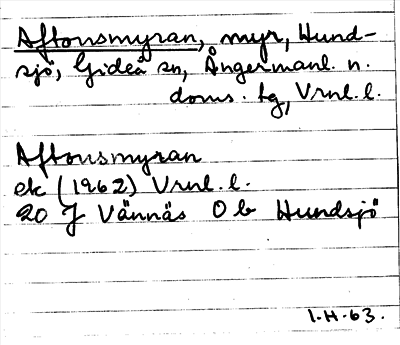 Aftonsmyran, myr, Hund-
sjö, Gideå sn, Ångermanl. n.
doms. tg, Vrnl.l.
Aftonsmyran
ek (1962) Vrnl.l.
20 J Vännäs Ob Hundsjö
I.H.63.